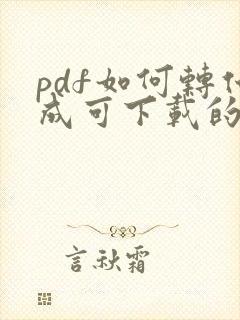 pdf如何轉
成可下載的
言秋霜